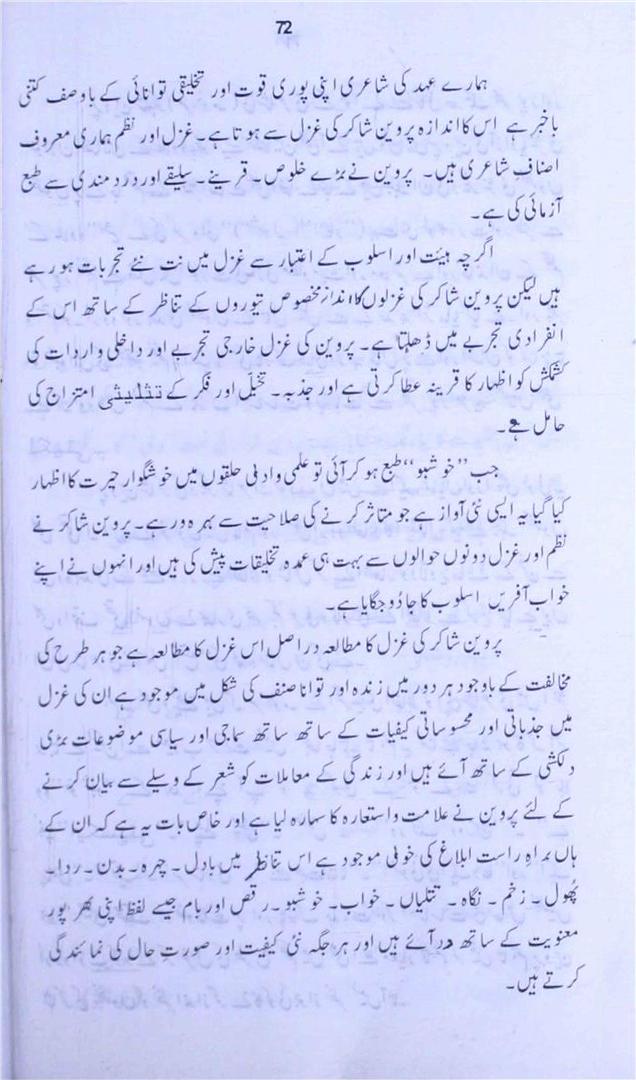 72
ہمارے عہد کی شاعری اپنی پوری قوت اور تخلیقی توانائی کے باوصف کتنی
باخبر ہے اس کا اندازہ پروین شاکر کی غزل سے ہوتا ہے۔ غزل اور نظم ہماری معروف
اصنافِ شاعری ہیں۔ پروین نے بڑے خلوص۔ قرینے۔ سلیقے اور درد مندی سے طبع
آزمائی کی ہے۔
اگرچہ ہیئت اور اسلوب کے اعتبار سے غزل میں نت نئے تجربات ہو رہے
ہیں لیکن پروین شاکر کی غزلوں کا انداز مخصوص تیوروں کے تناظر کے ساتھ اس کے
انفرادی تجربے میں ڈھلتا ہے۔ پروین کی غزل خارجی تجربے اور داخلی واردات کی
کشمکش کو اظہار کا قرینہ عطا کرتی ہے اور جذبہ۔ تخیل اور فکر کے تثلیثی امتزاج کی
حامل ہے۔
جب ’’خوشبو‘‘ طبع ہو کر آئی تو علمی وادبی حلقوں میں خوشگوار حیرت کا اظہار
کیا گیا یہ ایسی نئی آواز ہے جو متاثر کرنے کی صلاحیت سے بہرہ ور ہے۔ پروین شاکر نے
نظم اور غزل دونوں حوالوں سے بہت ہی عمدہ تخلیقات پیش کی ہیں اور انہوں نے اپنے
خواب آفریں اسلوب کا جادُو جگایا ہے۔
پروین شاکر کی غزل کا مطالعہ دراصل اس غزل کا مطالعہ ہے جو ہر طرح کی
مخالفت کے باوجود ہر دور میں زندہ اور توانا صنف کی شکل میں موجود ہے ان کی غزل
میں جذباتی اور محسوساتی کیفیات کے ساتھ ساتھ سماجی اور سیاسی موضوعات بڑی
دلکشی کے ساتھ آئے ہیں اور زندگی کے معاملات کو شعر کے وسیلے سے بیان کرنے
کے لئے پروین نے علامت و استعارہ کا سہارہ لیا ہے اور خاص بات یہ ہے کہ ان کے
ہاں براہِ راست ابلاغ کی خوبی موجود ہے اس تناظر میں بادل۔ چہرہ۔ بدن۔ ردا۔
پھُول۔ زخم۔ نگاہ۔ تتلیاں۔ خواب۔ خوشبو۔ رقص اور بام جیسے لفظ اپنی بھر پور
معنویت کے ساتھ در آئے ہیں اور ہر جگہ نئی کیفیت اور صورتِ حال کی نمائندگی
کرتے ہیں۔